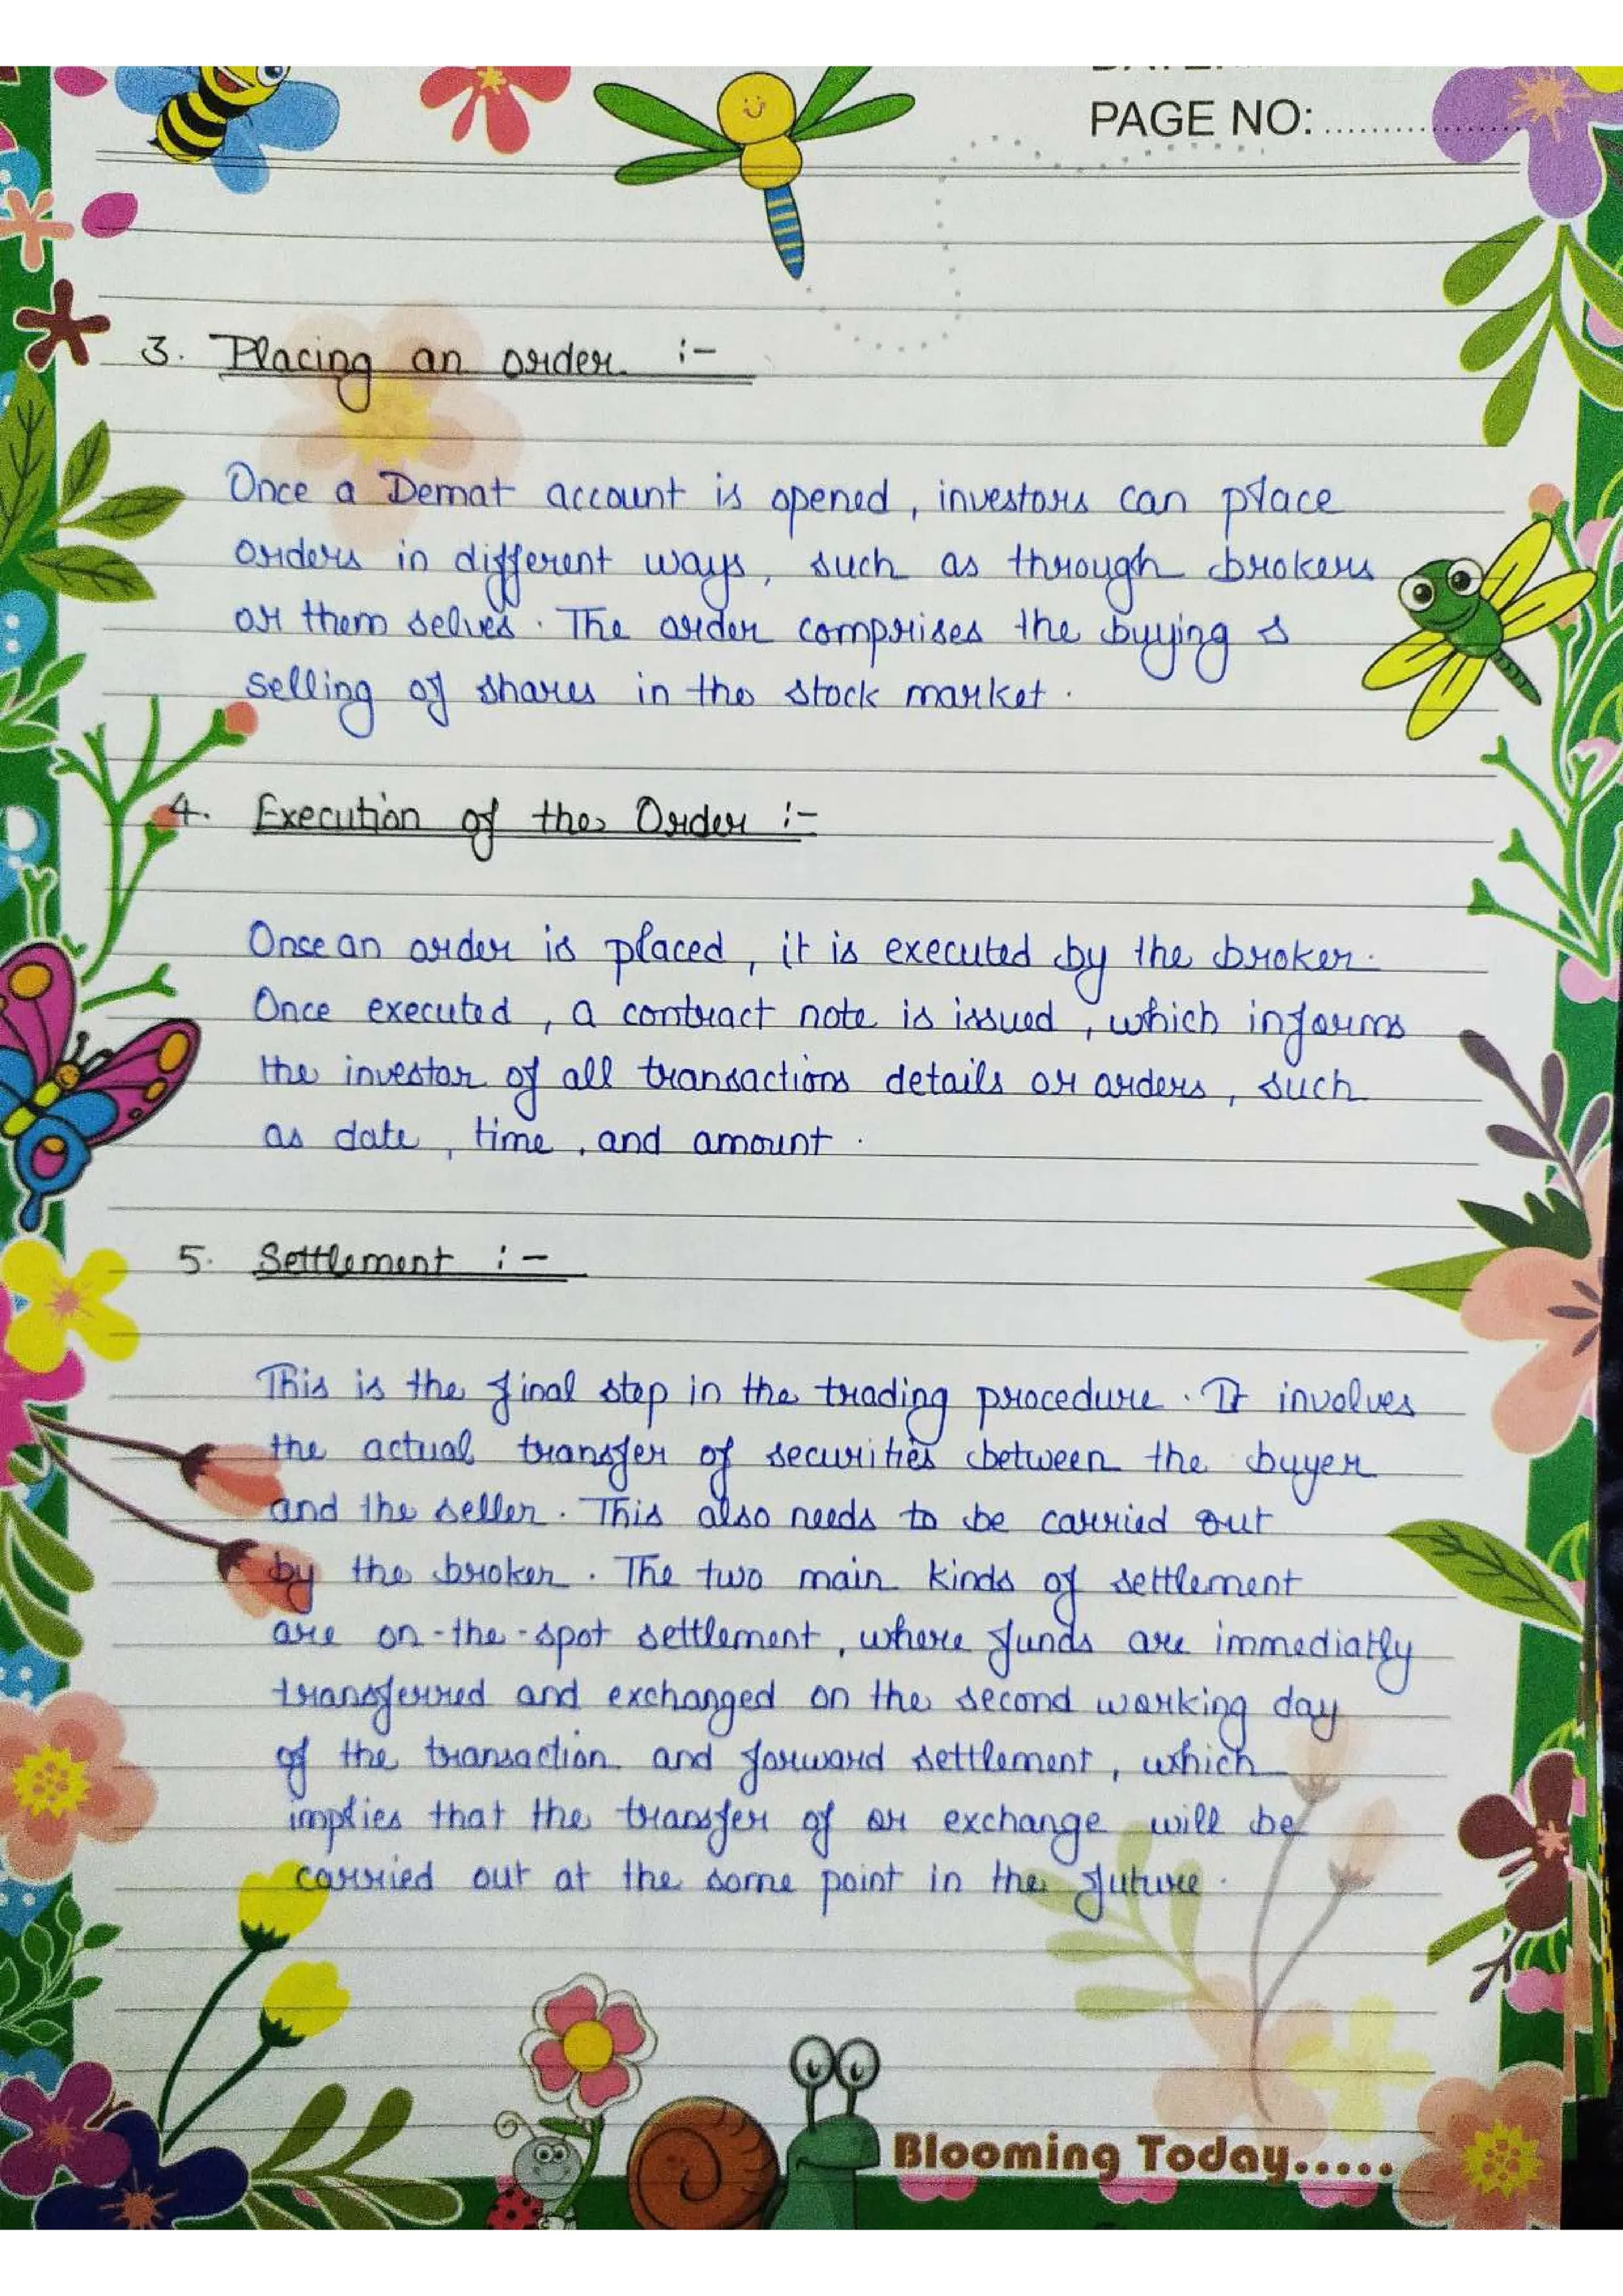 PAGE NO: ....................
3. Placing an order :-
Once a Demat account is opened, investors can place
orders in different ways, such as through brokers
or them selves. The order comprises the buying &
selling of shares in the stock market.
4. Execution of the Order :-
Onse an order is placed, it is executed by the broker.
Once executed, a contract note is issued, which informs
the investor of all transactions details or orders, such
as date, time, and amount.
5. Settlement :-
This is the final step in the trading procedure. It involves
the actual transfer of securities between the buyer
and the seller. This also needs to be carried out
by the broker. The two main kinds of settlement
are on-the-spot settlement, where funds are immediatly
transferred and exchanged on the second working day
of the transaction and forward settlement, which
implies that the transfer of or exchange will be
carried out at the some point in the future.
Blooming Today.....